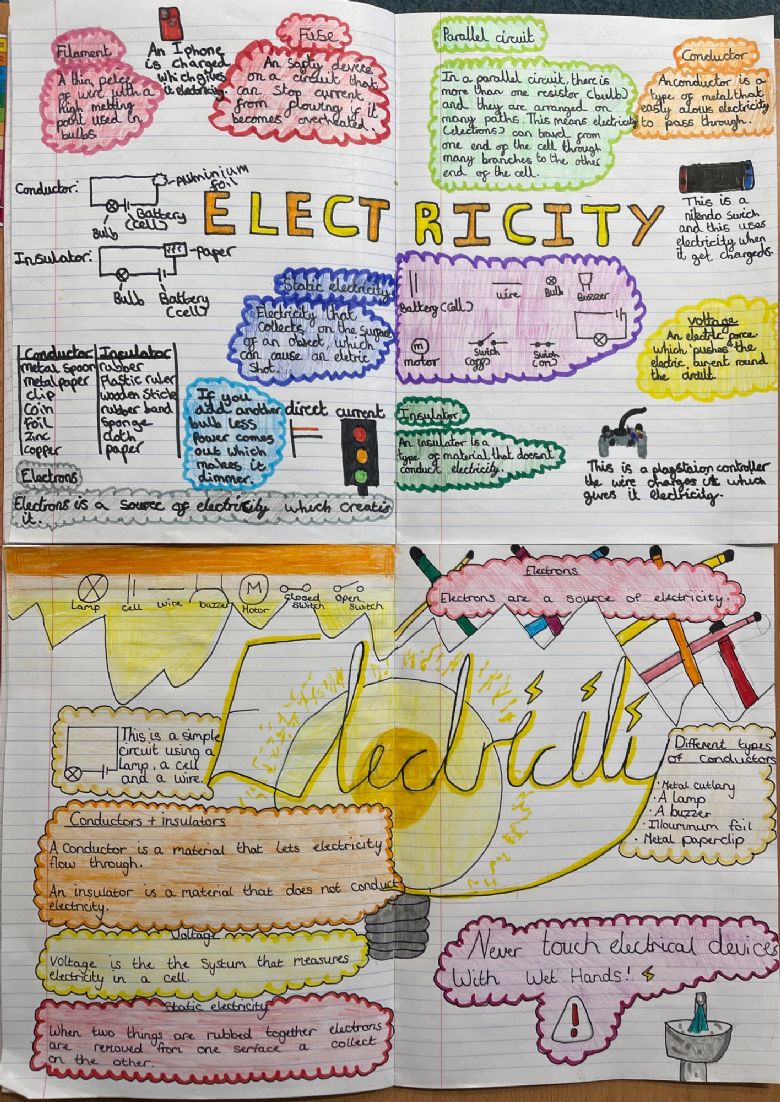 Filament
A thin peice
of wire with a
high melting
point used in
bulbs.
An Iphone
is charged
which gives
it electricity.
Fuse
An safty device
on a circuit that
can stop current
from flowing if it
becomes overheated.
Parallel circuit
In a parallel circuit, there is
more than one resistor (bulb)
and they are arranged on
many paths. This means electricity
(electons) can travel from
one end of the cell through
many branches to the other
end of the cell.
Conductor
An conductor is a
type of metal that
easily alows electricity
to pass through.
Conductor:
Aluminium
foil
Bulb
Battery
(cell)
Insulator:
paper
Bulb
Battery
(cell)
ELECTRICITY
This is a
nitendo swich
and this uses
electricity when
it get charged.
Static electricity
Electricity that
collects, on the surface
of an object, which
can cause an eletric
shot.
Battery (cell)
wire
Bulb
Buzzer
M
motor
Switch
(off)
Switch
(on)
Voltage
An electric force
which pushes the
electric current round
the circuit.
Conductor Insulator
metal spoon rubber
metal paper Plastic ruler
clip wooden stick
Coin rubber band
foil sponge
zinc cloth
copper paper
If you
add another
bulb less
Power comes
out which
makes it
dimmer.
direct current
Insulator
An insulator is a
type of material that doesnt
conduct electricity.
This is a playstaion controller
the wire charges it which
gives it electricity.
Electrons
Electrons is a source of electricity which creates
it.
Lamp
cell
wire
buzzer
M
Motor
Closed
switch
Open
switch
Electrons
Electrons are a source of electricity.
Electricity
This is a simple
circuit using a
lamp, a cell
and a wire.
Different types
of conductors
· Metal cutlary
· A lamp
· A buzzer
· Illouminum foil
· Metal paperclip
Conductors + insulators
A Conductor is a material that lets electricity
flow through.
An insulator is a material that does not conduct
electricity.
Voltage
Voltage is the the System that measures
electricity in a cell.
Static electricity
When two things are rubbed together electrons
are removed from one serface a collect
on the other.
Never touch electrical devices
With Wet Hands!
!